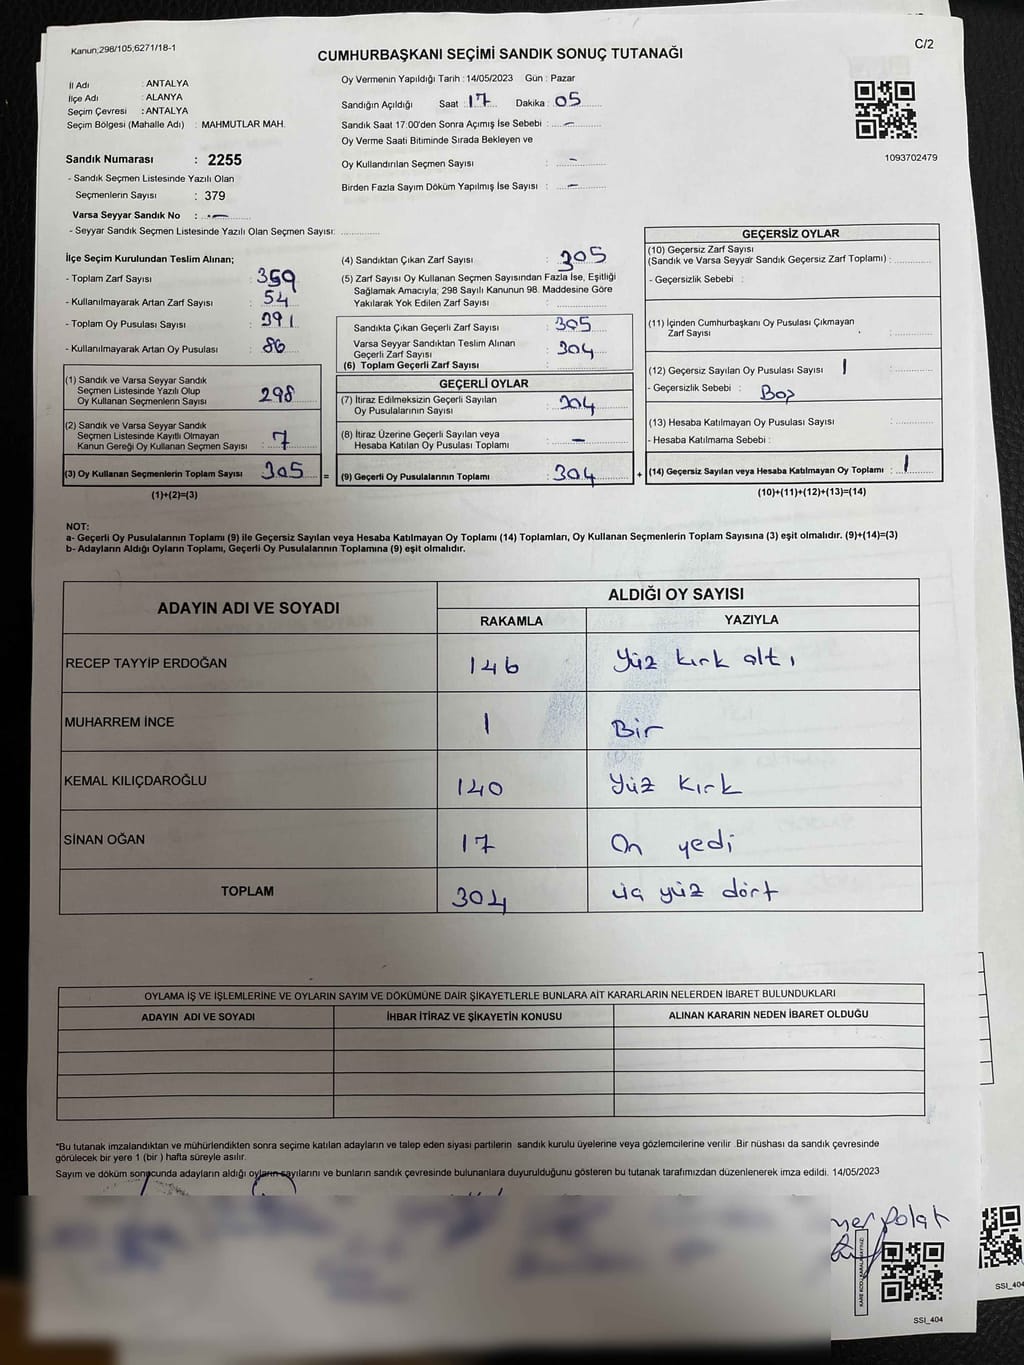 Kanun;298/105;6271/18-1
C/2
CUMHURBAŞKANI SEÇİMİ SANDIK SONUÇ TUTANAĞI
İl Adı : ANTALYA
İlçe Adı : ALANYA
Seçim Çevresi : ANTALYA
Seçim Bölgesi (Mahalle Adı) : MAHMUTLAR MAH.
Sandık Numarası : 2255
- Sandık Seçmen Listesinde Yazılı Olan
Seçmenlerin Sayısı : 379
Varsa Seyyar Sandık No : -
- Seyyar Sandık Seçmen Listesinde Yazılı Olan Seçmen Sayısı:
Oy Vermenin Yapıldığı Tarih : 14/05/2023 Gün : Pazar
Sandığın Açıldığı Saat : 17 Dakika : 05
Sandık Saat 17:00'den Sonra Açımış İse Sebebi : -
Oy Verme Saati Bitiminde Sırada Bekleyen ve
Oy Kullandırılan Seçmen Sayısı : -
Birden Fazla Sayım Döküm Yapılmış İse Sayısı : -
1093702479
İlçe Seçim Kurulundan Teslim Alınan;
- Toplam Zarf Sayısı : 359
- Kullanılmayarak Artan Zarf Sayısı : 54
- Toplam Oy Pusulası Sayısı : 391
- Kullanılmayarak Artan Oy Pusulası : 86
(1) Sandık ve Varsa Seyyar Sandık
Seçmen Listesinde Yazılı Olup
Oy Kullanan Seçmenlerin Sayısı : 298
(2) Sandık ve Varsa Seyyar Sandık
Seçmen Listesinde Kayıtlı Olmayan
Kanun Gereği Oy Kullanan Seçmen Sayısı : 7
(3) Oy Kullanan Seçmenlerin Toplam Sayısı : 305 =
(1)+(2)=(3)
(4) Sandıktan Çıkan Zarf Sayısı : 305
(5) Zarf Sayısı Oy Kullanan Seçmen Sayısından Fazla İse, Eşitliği
Sağlamak Amacıyla; 298 Sayılı Kanunun 98. Maddesine Göre
Yakılarak Yok Edilen Zarf Sayısı :
Sandıkta Çıkan Geçerli Zarf Sayısı : 305
Varsa Seyyar Sandıktan Teslim Alınan
Geçerli Zarf Sayısı : 304
(6) Toplam Geçerli Zarf Sayısı :
GEÇERLİ OYLAR
(7) İtiraz Edilmeksizin Geçerli Sayılan
Oy Pusulalarının Sayısı : 304
(8) İtiraz Üzerine Geçerli Sayılan veya
Hesaba Katılan Oy Pusulası Toplamı : -
(9) Geçerli Oy Pusulalarının Toplamı : 304 +
GEÇERSİZ OYLAR
(10) Geçersiz Zarf Sayısı
(Sandık ve Varsa Seyyar Sandık Geçersiz Zarf Toplamı) :
- Geçersizlik Sebebi :
(11) İçinden Cumhurbaşkanı Oy Pusulası Çıkmayan
Zarf Sayısı :
(12) Geçersiz Sayılan Oy Pusulası Sayısı : 1
- Geçersizlik Sebebi : Boş
(13) Hesaba Katılmayan Oy Pusulası Sayısı :
- Hesaba Katılmama Sebebi :
(14) Geçersiz Sayılan veya Hesaba Katılmayan Oy Toplamı : 1
(10)+(11)+(12)+(13)=(14)
NOT:
a- Geçerli Oy Pusulalarının Toplamı (9) ile Geçersiz Sayılan veya Hesaba Katılmayan Oy Toplamı (14) Toplamları, Oy Kullanan Seçmenlerin Toplam Sayısına (3) eşit olmalıdır. (9)+(14)=(3)
b- Adayların Aldığı Oyların Toplamı, Geçerli Oy Pusulalarının Toplamına (9) eşit olmalıdır.
ADAYIN ADI VE SOYADI
ALDIĞI OY SAYISI
RAKAMLA YAZIYLA
RECEP TAYYİP ERDOĞAN 146 Yüz kırk altı
MUHARREM İNCE 1 Bir
KEMAL KILIÇDAROĞLU 140 Yüz kırk
SİNAN OĞAN 17 On yedi
TOPLAM 304 üç yüz dört
OYLAMA İŞ VE İŞLEMLERİNE VE OYLARIN SAYIM VE DÖKÜMÜNE DAİR ŞİKAYETLERLE BUNLARA AİT KARARLARIN NELERDEN İBARET BULUNDUKLARI
ADAYIN ADI VE SOYADI İHBAR İTİRAZ VE ŞİKAYETİN KONUSU ALINAN KARARIN NEDEN İBARET OLDUĞU
*Bu tutanak imzalandıktan ve mühürlendikten sonra seçime katılan adayların ve talep eden siyasi partilerin sandık kurulu üyelerine veya gözlemcilerine verilir .Bir nüshası da sandık çevresinde
görülecek bir yere 1 (bir ) hafta süreyle asılır.
Sayım ve döküm sonucunda adayların aldığı oyların sayılarını ve bunların sandık çevresinde bulunanlara duyurulduğunu gösteren bu tutanak tarafımızdan düzenlenerek imza edildi. 14/05/2023
Polat
SSI_404
SSI_404